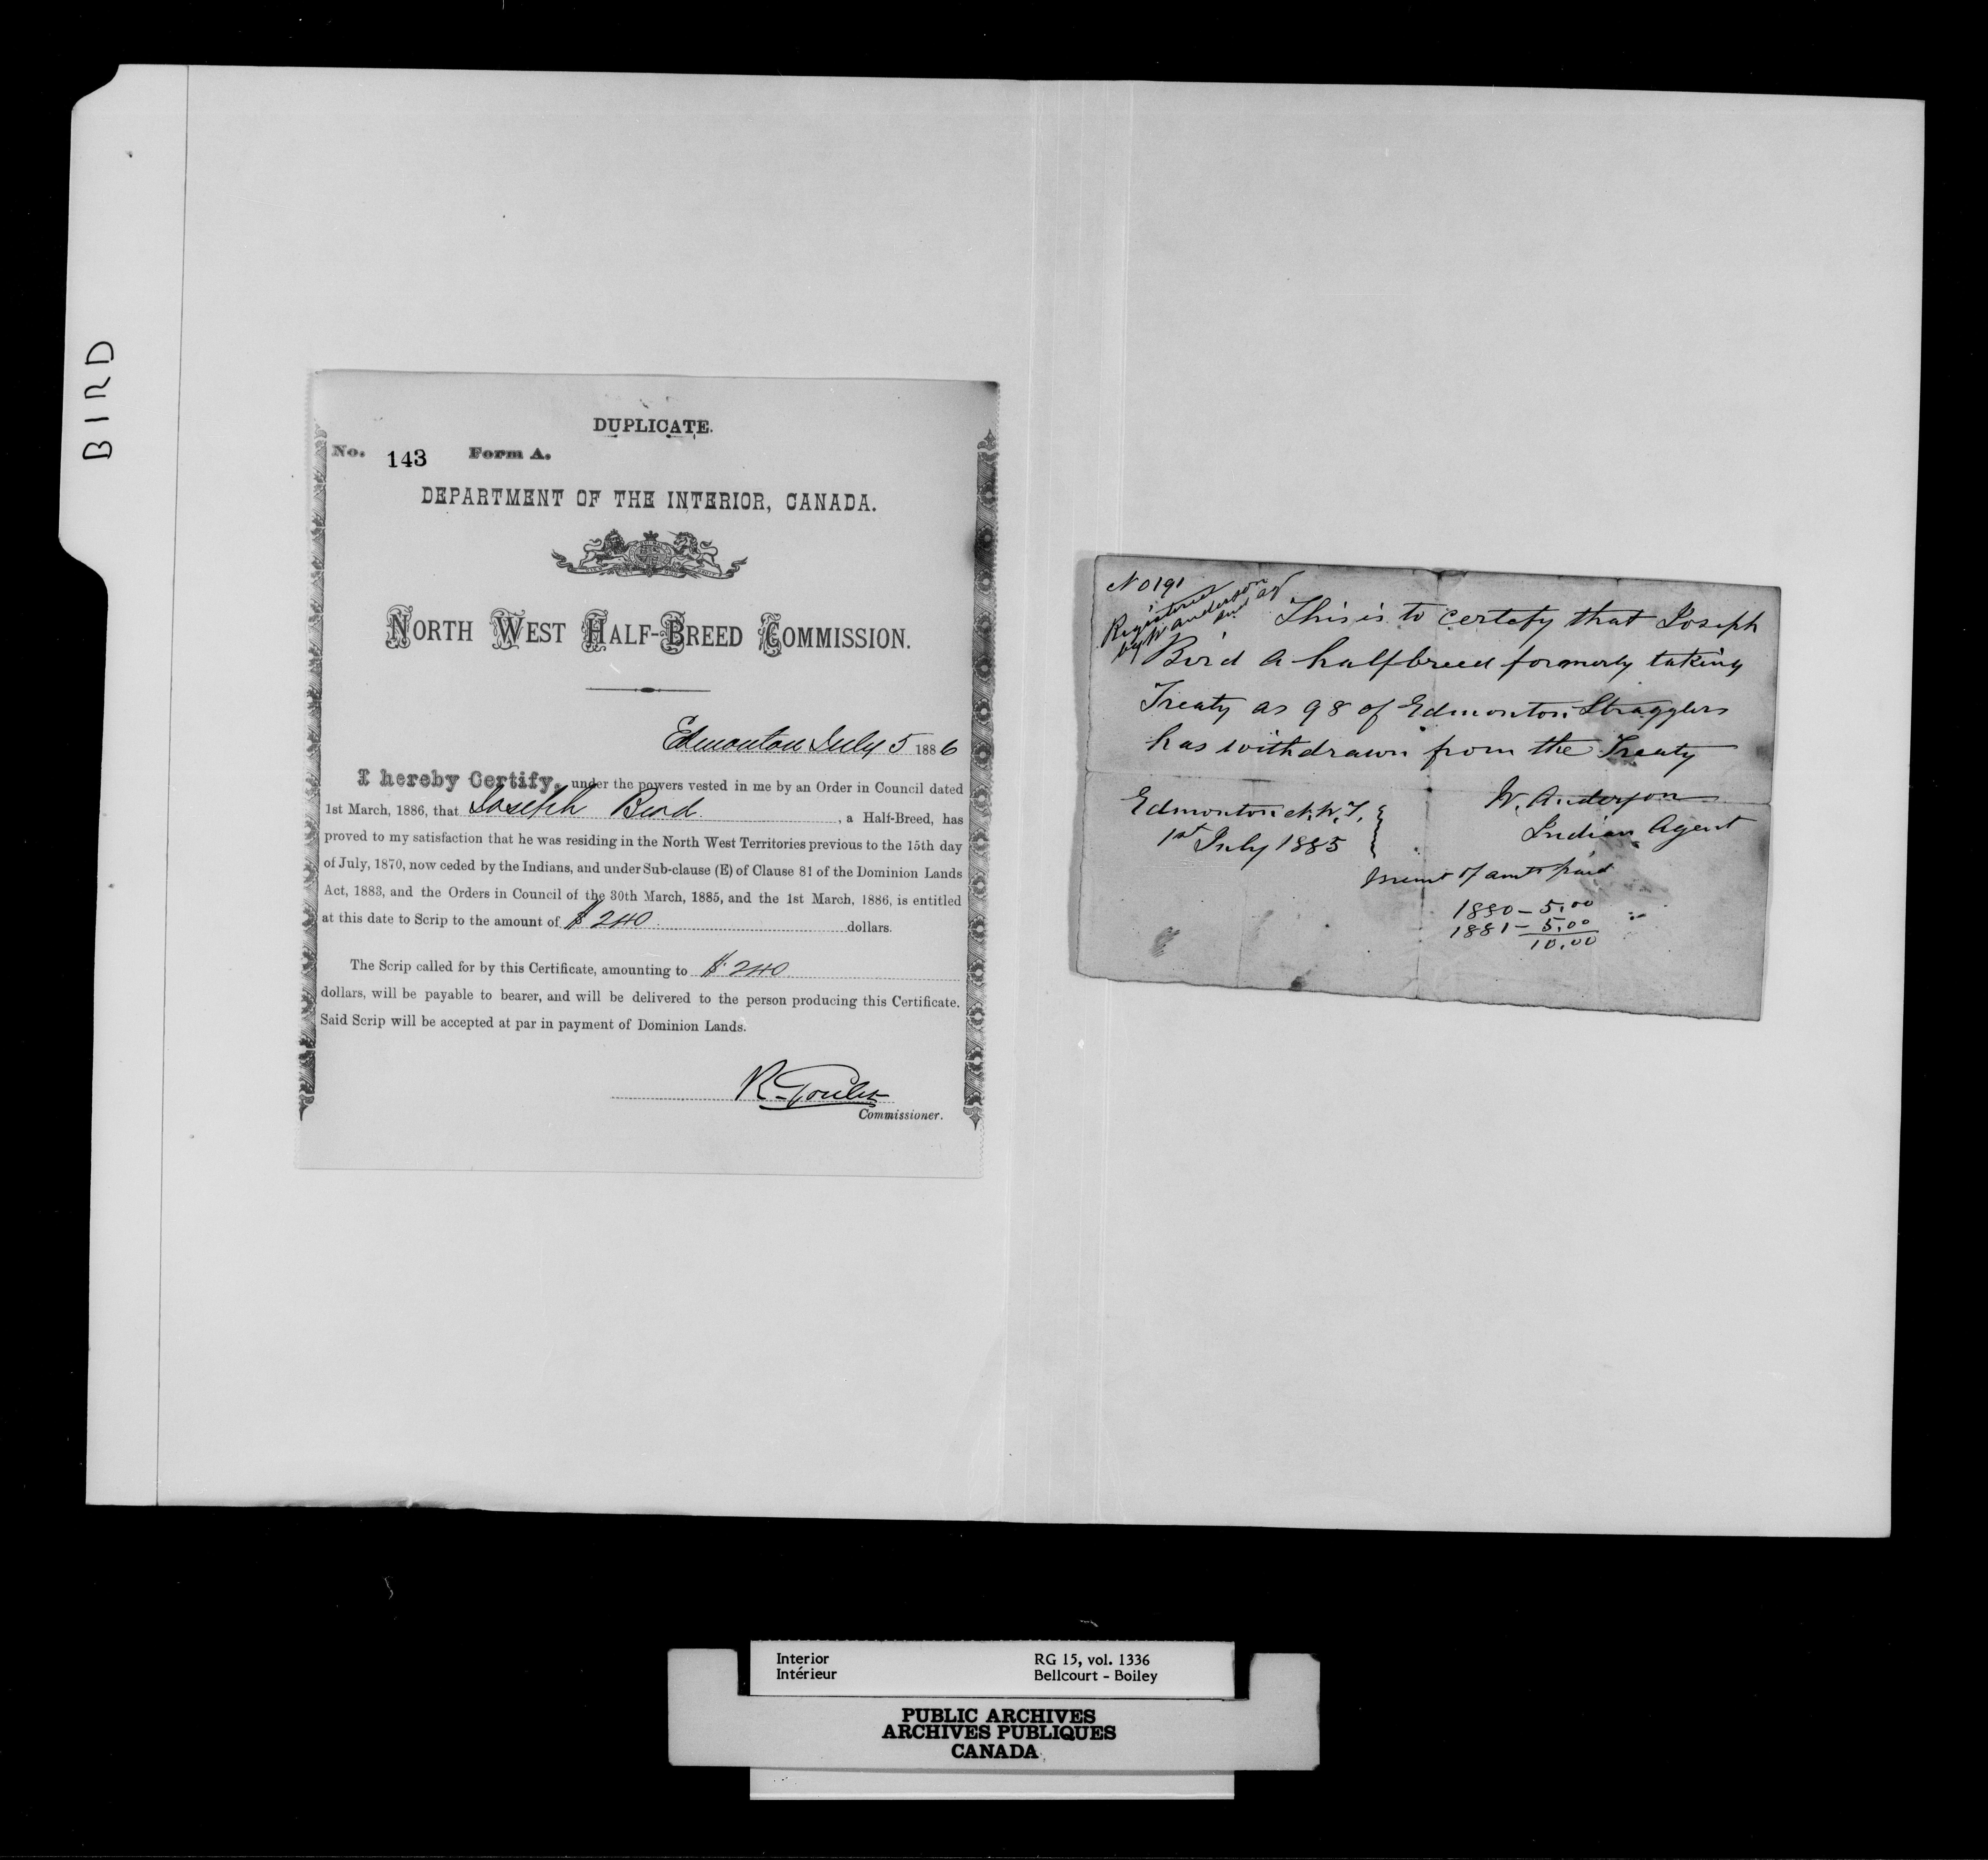 BIRD
DUPLICATE.
No. 143 Form A.
DEPARTMENT OF THE INTERIOR, CANADA.
NORTH WEST HALF-BREED COMMISSION.
Edmonton July 5 1886
I hereby Certify, under the powers vested in me by an Order in Council dated
1st March, 1886, that Joseph Bird , a Half-Breed, has
proved to my satisfaction that he was residing in the North West Territories previous to the 15th day
of July, 1870, now ceded by the Indians, and under Sub-clause (E) of Clause 81 of the Dominion Lands
Act, 1883, and the Orders in Council of the 30th March, 1885, and the 1st March, 1886, is entitled
at this date to Scrip to the amount of $ 240 dollars.
The Scrip called for by this Certificate, amounting to $ 240
dollars, will be payable to bearer, and will be delivered to the person producing this Certificate.
Said Scrip will be accepted at par in payment of Dominion Lands.
R. Goulet
Commissioner.
No 191
Registered
by W Anderson
Ind Ag
This is to certefy that Joseph
Bird a halfbreed formerly taking
Treaty as 98 of Edmonton Stragglers
has withdrawn from the Treaty
W. Anderson
Indian Agent
Edmonton N.W.T.
1st July 1885
of amts paid
1880 – 5.00
1881 – 5.00
10.00
Interior
Intérieur
RG 15, vol. 1336
Bellcourt - Boiley
PUBLIC ARCHIVES
ARCHIVES PUBLIQUES
CANADA